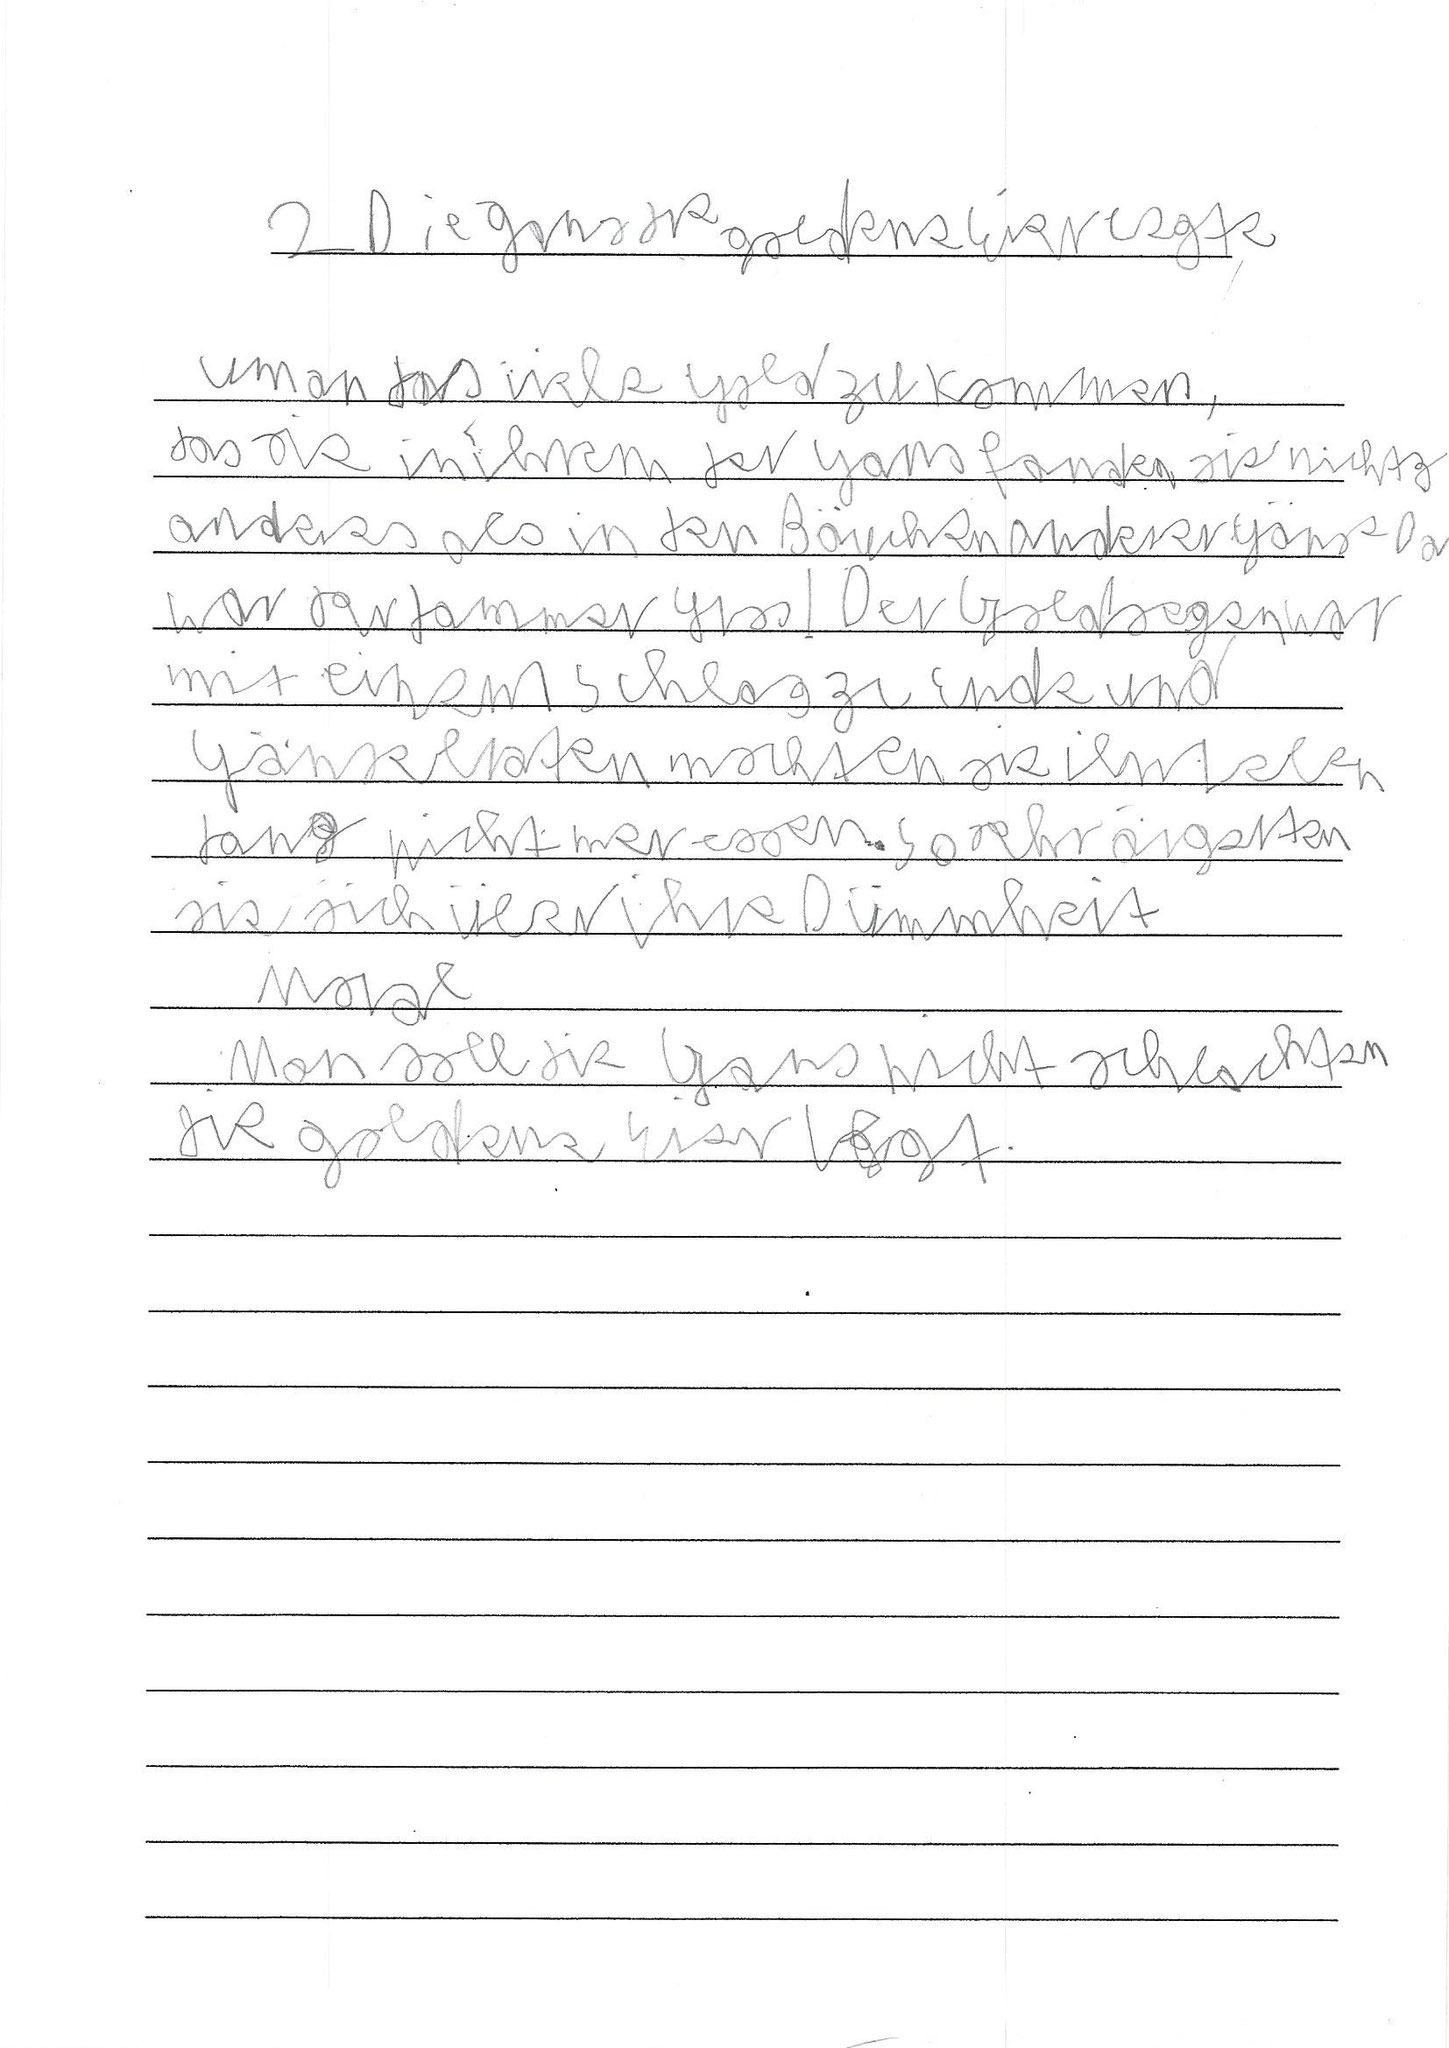 2 Die gans die goldene Eier legte
um an das viele Gold zu kommen,
das sie in ihrem der Gans fanden sie nichtz
anderes als in den Bäuchen anderer Gänse Da
war der Jammer gros! Der Goldsegen war
mit einem Schlag zu ende und
Gänsebraten mochten sie ihr leben
lang nicht mer essen. So sehr ärgerten
sie sich über ihre Dümmheit
Moral
Man soll die Gans nicht schlachten
die goldene Eier legt.